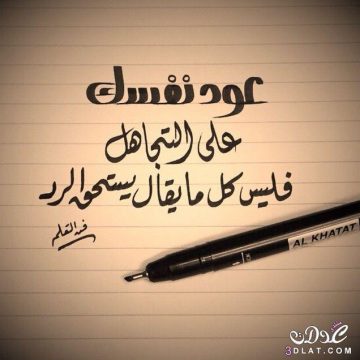 عود نفسك
على التجاهل
فليس كل ما يقال يستحق الرد
فن القلم
AL KHATAT
عدلات
3DLAT.COM